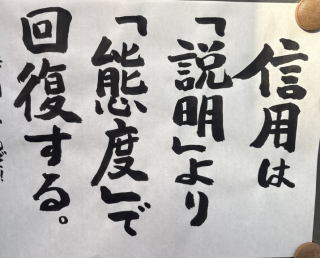 信用は
「説明」より
「態度」で
回復する。